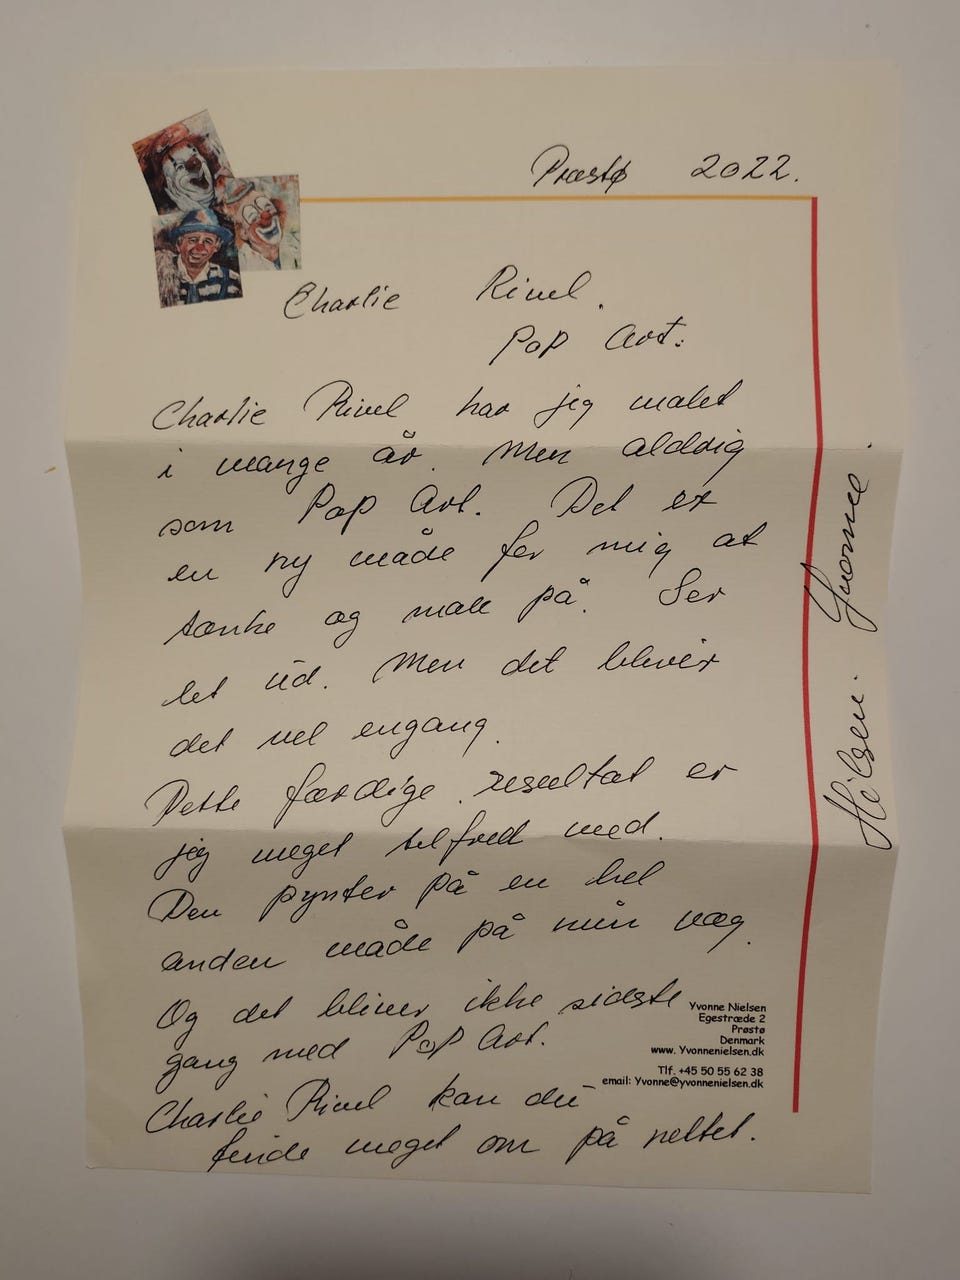 Præstø 2022.
Charlie Rivel.
Pop Art.
Charlie Rivel har jeg malet
i mange år. Men aldrig
som Pop Art. Det er
en ny måde for mig at
tænke og male på. Ser
let ud. Men det bliver
det vel engang.
Dette færdige resultat er
jeg meget tilfred med.
Den pynter på en hel
anden måde på min væg.
Og det bliver ikke sidste
gang med Pop Art.
Charlie Rivel kan du
finde meget om på nettet.
Hilsen. Yvonne.
Yvonne Nielsen
Egestræde 2
Præstø
Denmark
www. Yvonnenielsen.dk
Tlf. +45 50 55 62 38
email: Yvonne@yvonnenielsen.dk